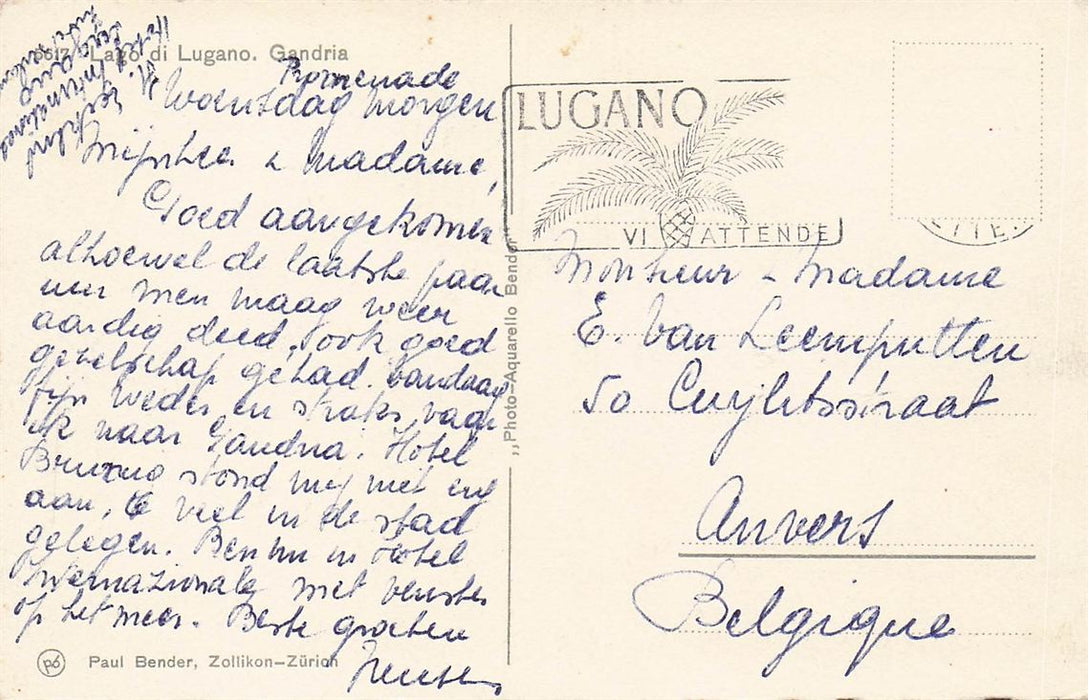 6617 Lago di Lugano. Gandria
Promenade
Woensdag morgen
Mijnheer & Madame,
Goed aangekomen
alhoewel de laatste paar
uur men maag weer
aardig deed, ook goed
gezelschap gehad. Vandaag
fijn weder en straks vaar
ik naar Gandria. Hotel
stond mij niet erg
aan, te veel in de stad
gelegen. Ben nu in Hotel
Internazionale met venster
op het meer. Beste groeten
LUGANO
VI ATTENDE
Monsieur - Madame
E. Van Leemputten
50 Cuylitsstraat
Anvers
Belgique
„Photo-Aquarello Bender"
Paul Bender, Zollikon-Zürich